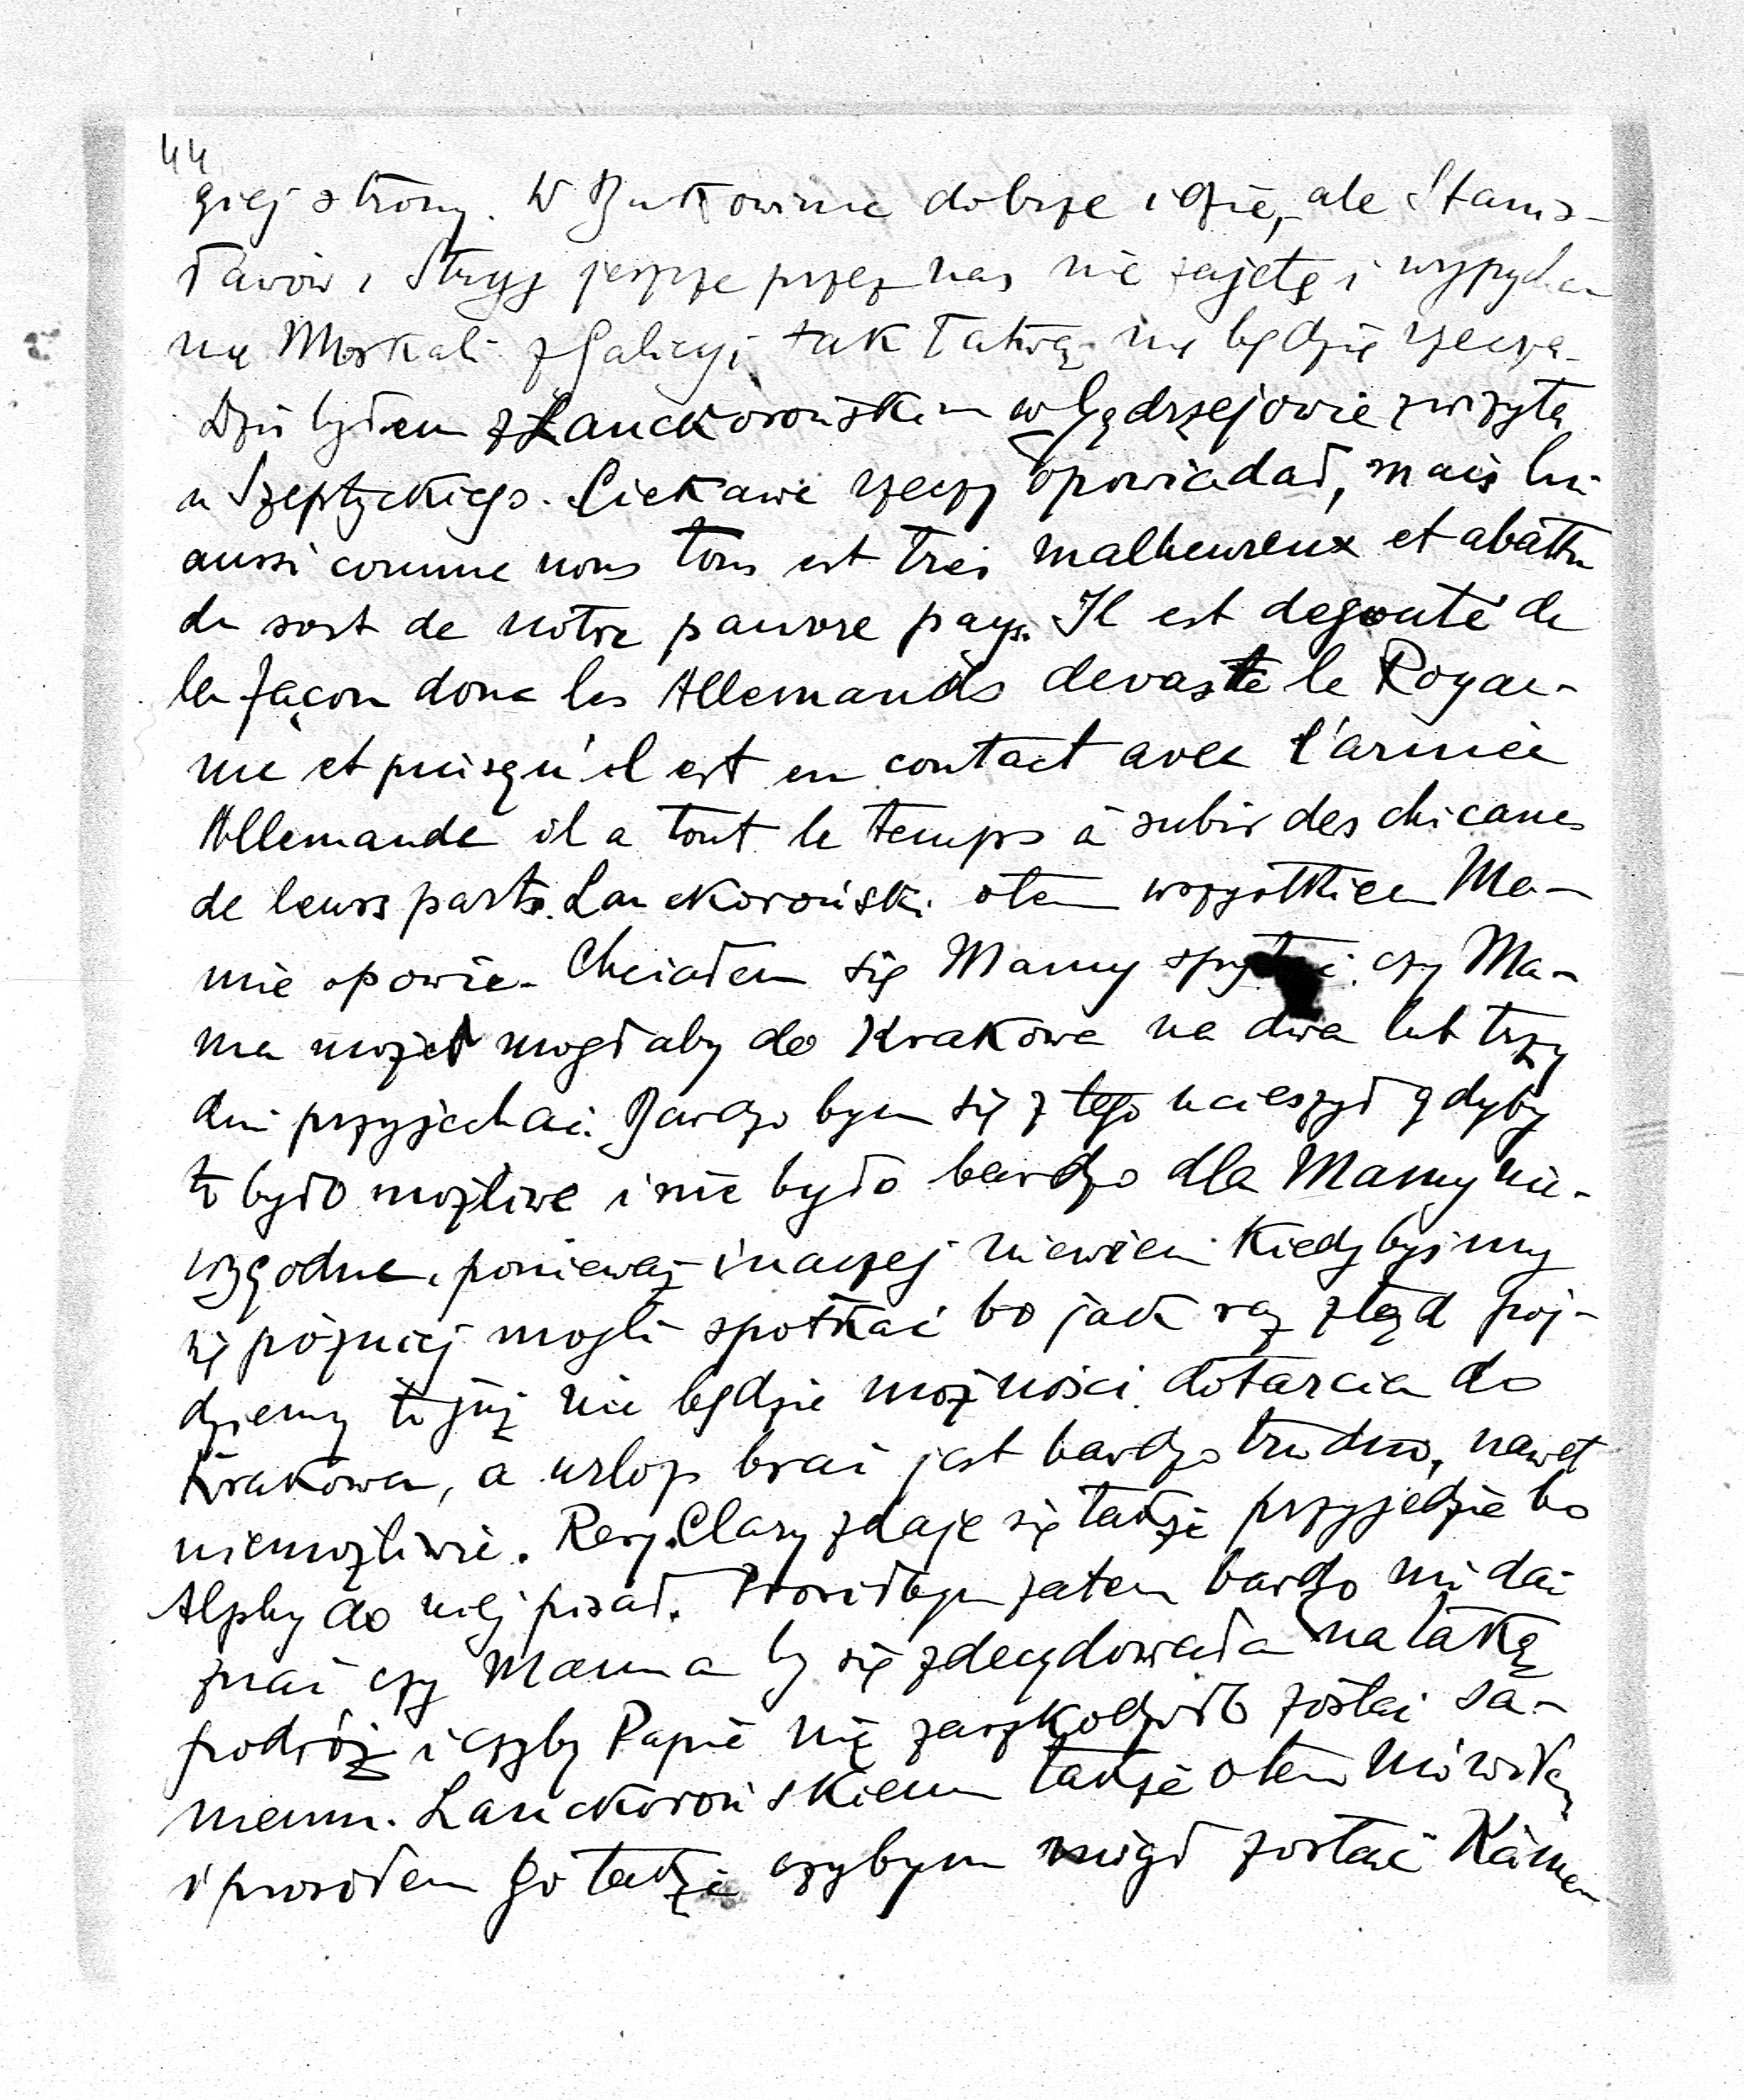 44
giej strony. W Bukowinie dobrze idzie, ale Stanis-
ławów i Stryj jeszcze przez nas nie zajętę i wypycha
nię Moskali z Galicyi tak łatwą nie będzie rzeczą.
Dziś byłem z Lanckorońskim w Jędrzejowie z wizytą
u Szeptyckiego. Ciekawe rzeczy opowiadał, mais lui
aussi comme nous tous est très malheureux et abattu
du sort de nôtre pauvre pays. Il est degouté de
la façon donc les Allemands devaste le Royau-
me et puisqu'il est en contact avec l'armée
Allemande il a tout le temps à subir des chicanes
de leurs parts. Lanckoroński o tem wszystkiem Ma-
mie opowie. Chciałem się Mamy spytać czy Ma-
ma może mogłaby do Krakowa na dwa lub trzy
dni przyjechać. Bardzo bym się z tego ucieszył gdyby
to było możliwe i nie było bardzo dla Mamy nie-
wygodne, ponieważ inaczej niewiem kiedy byśmy
się później mogli spotkać bo jak raz ztąd pój-
dziemy to już nie będzie możności dotarcia do
Krakowa, a urlop brać jest bardzo trudno, nawet
niemożliwie. Clary zdaje się także przyjedzie bo
Alphy do niej pisał. Prosiłbym zatem bardzo mi dać
znać czy Mama by się zdecydowała na taką
podróż i czyby Papie nie zaszkodziło zostać sa-
memu. Lanckorońskiem także o tem mówiłem
i prosiłem go także czybym mógł zostać Kämme